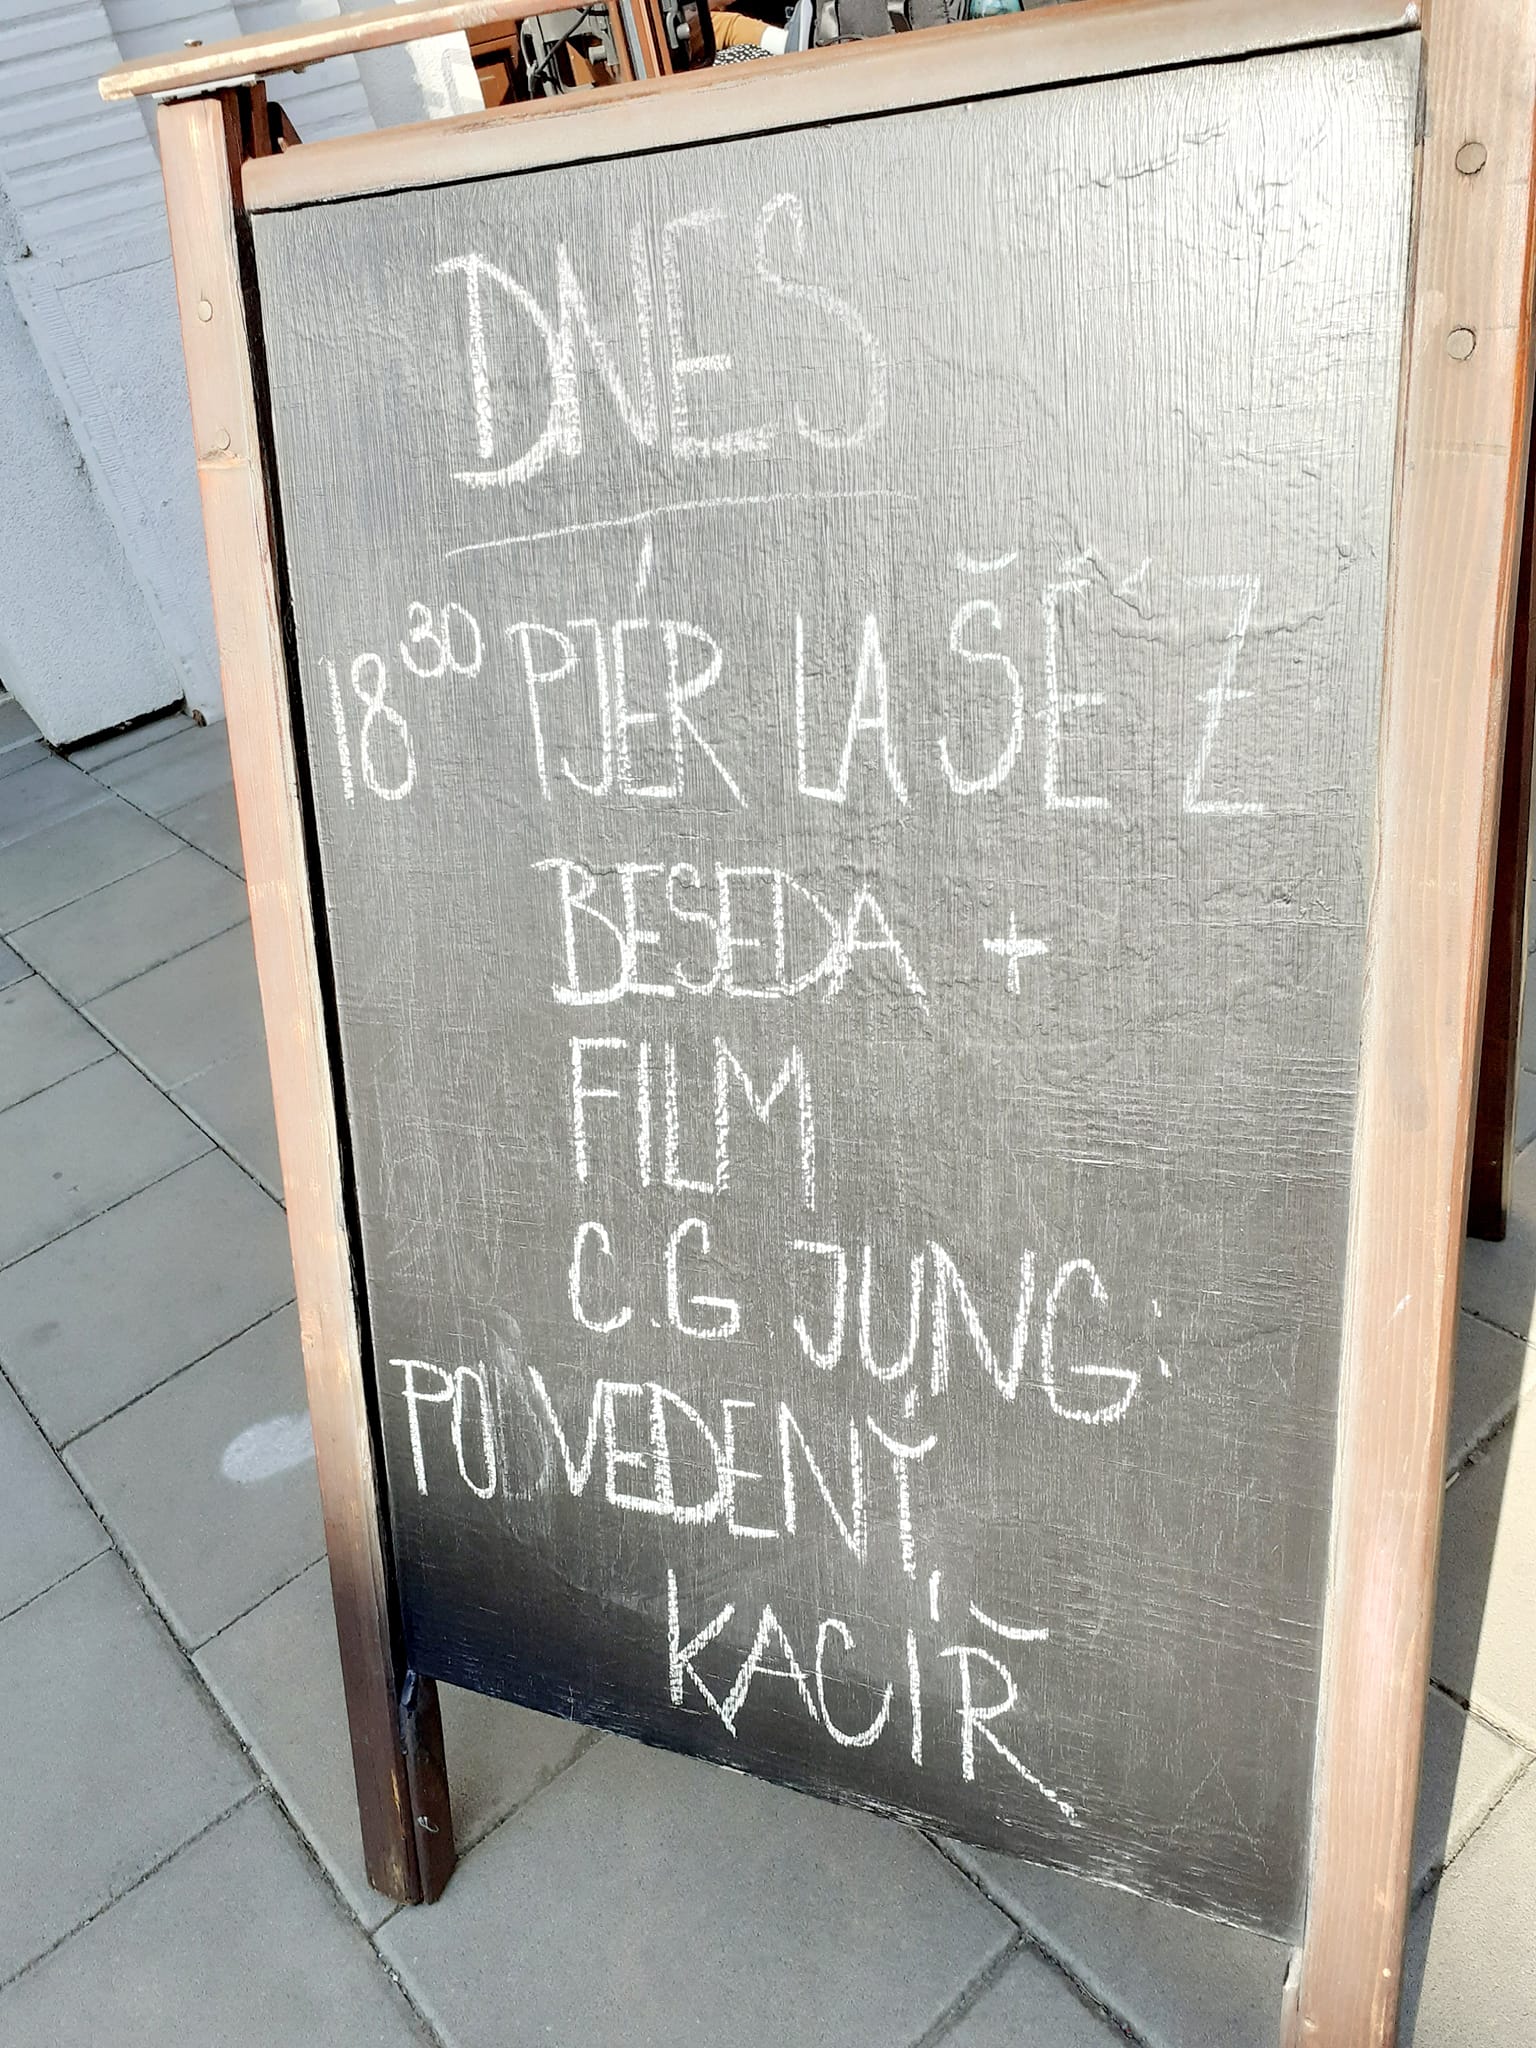 DNES
18³⁰ PJÉR LA ŠÉ'Z
BESEDA +
FILM
C.G JUNG:
POVEDENÝ
KACÍŘ